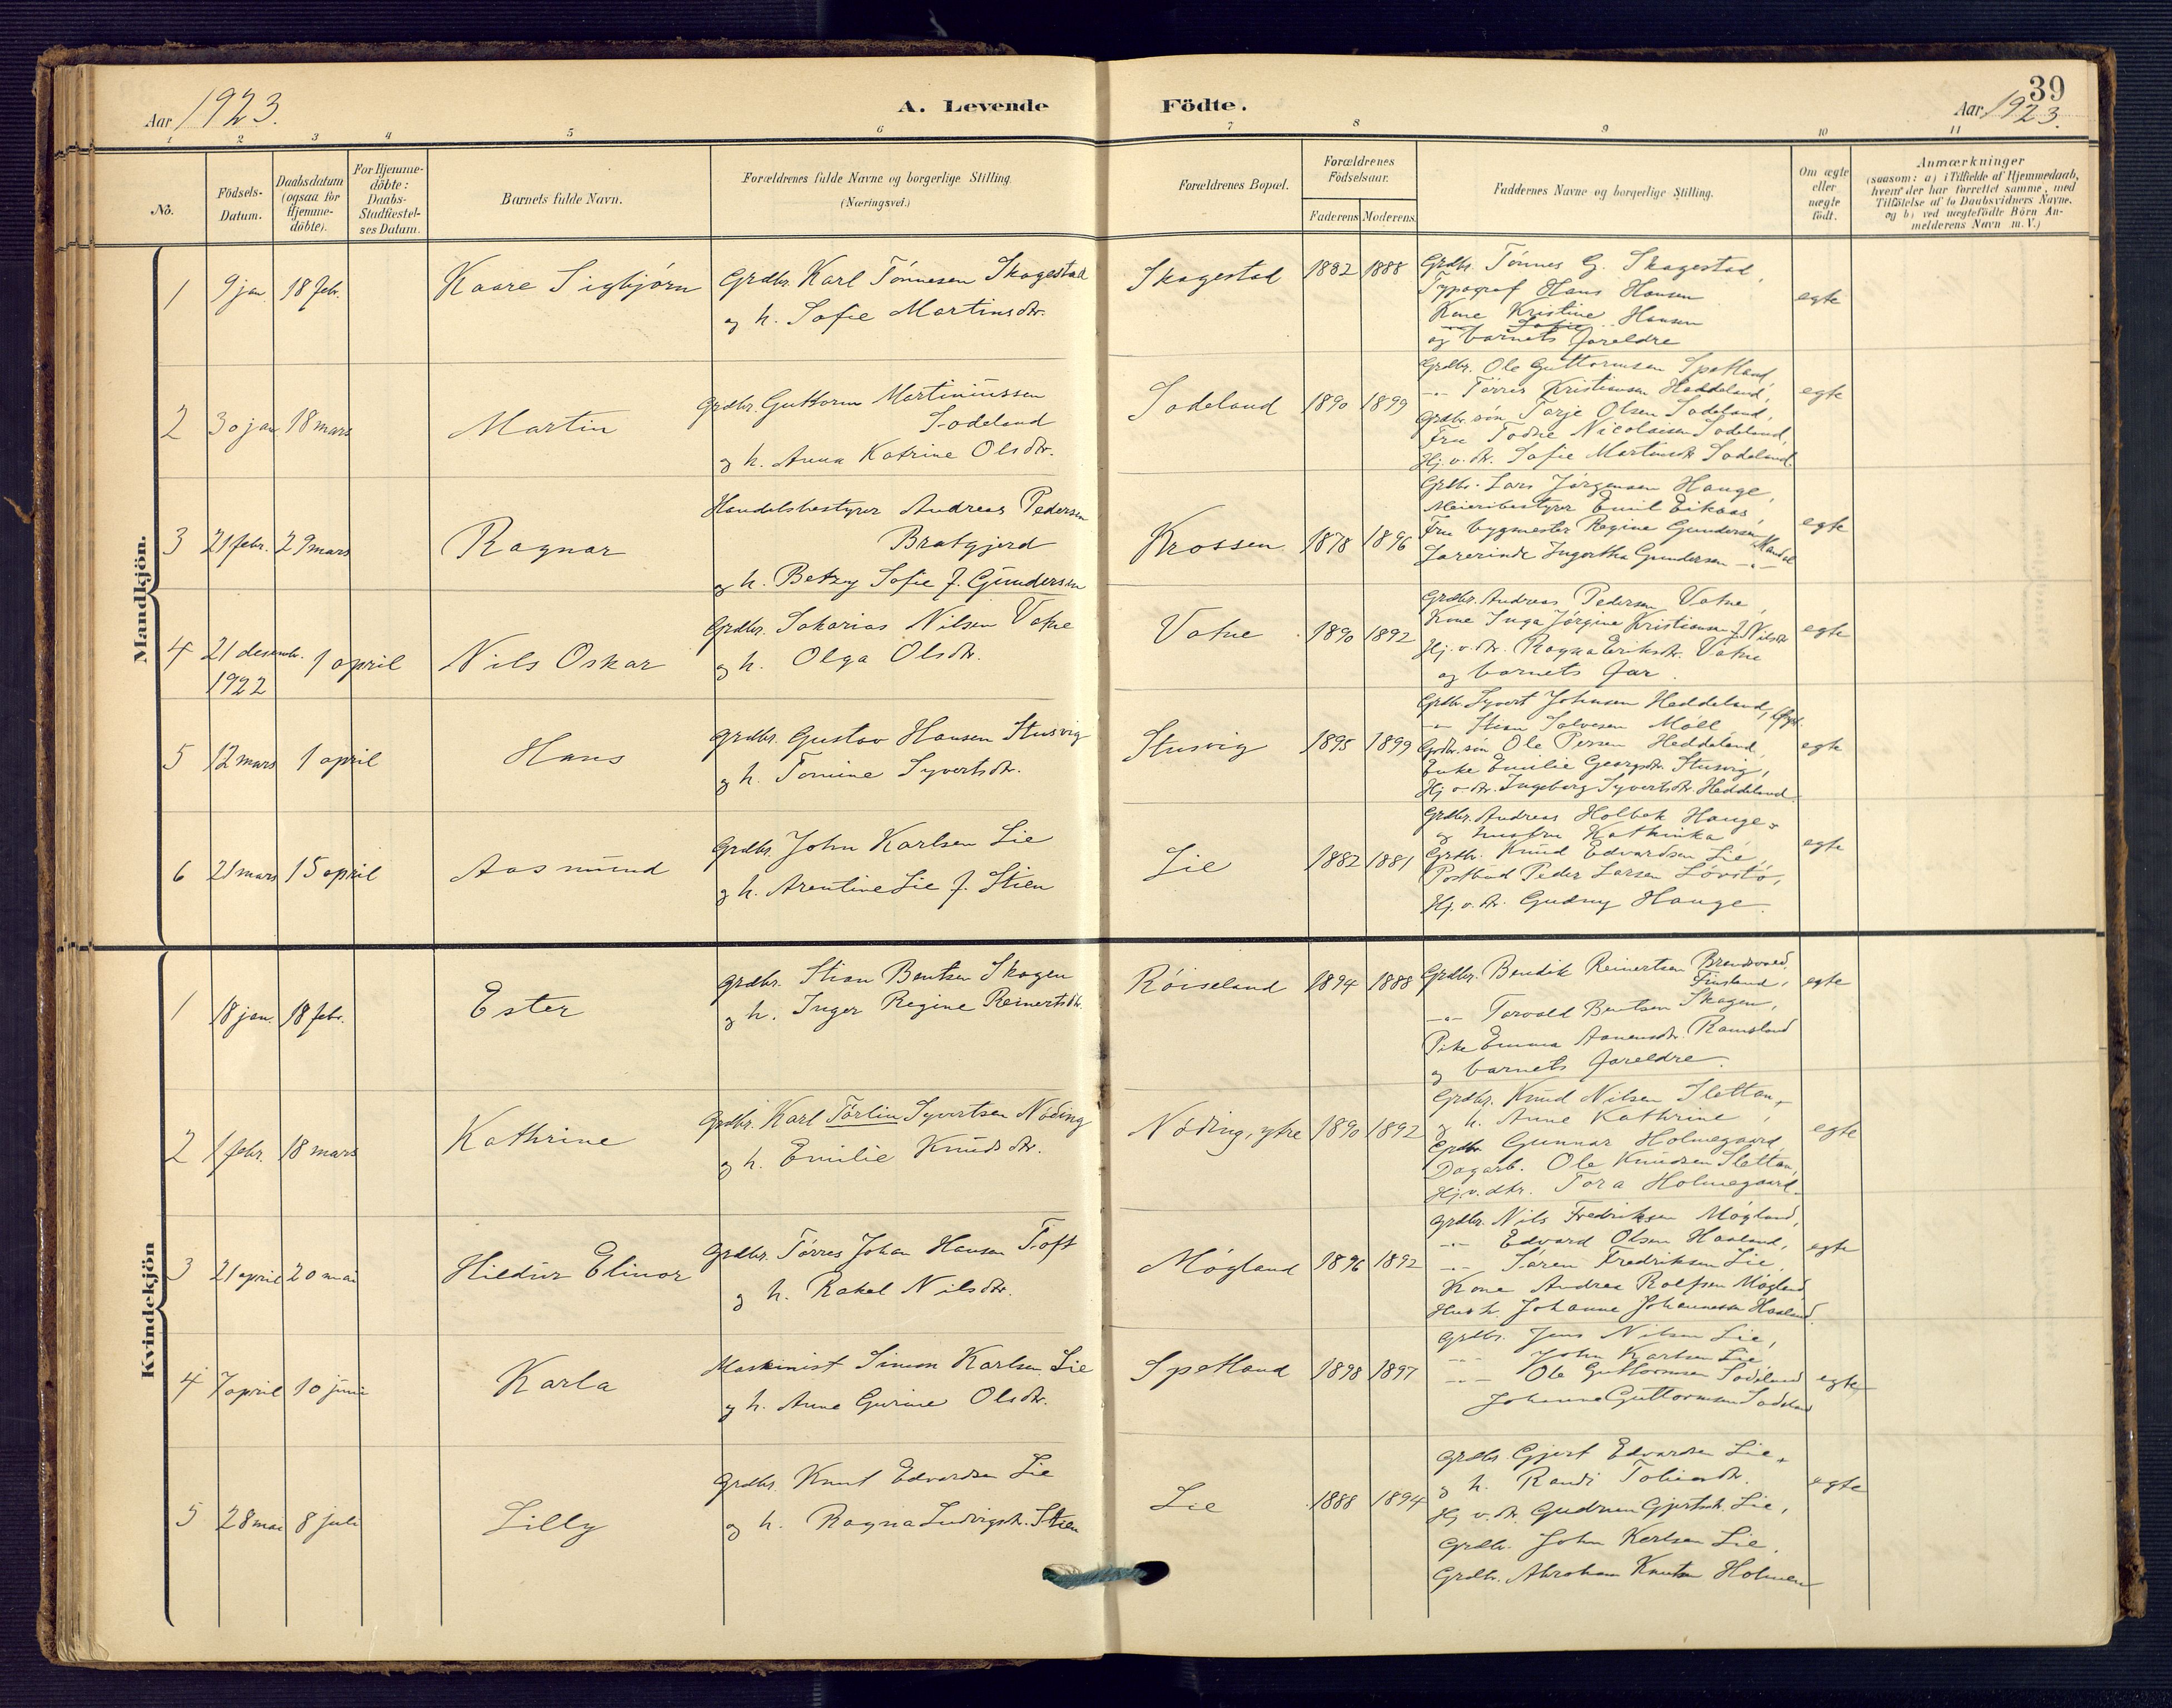 39
Aar 1923.
A. Levende Födte.
Aar 1923.
1 2 3 4 5 6 7 8 9 10 11
No.
Födsels-Datum.
Daabsdatum (ogsaa for Hjemme-döbte).
For Hjemme-döbte: Daabs-Stadfæstel-ses Datum.
Barnets fulde Navn.
Forældrenes fulde Navne og borgerlige Stilling (Næringsvei.)
Forældrenes Bopæl.
Forældrenes Födselsaar.
Faderens Moderens.
Faddernes Navne og borgerlige Stilling.
Om ægte eller uægte födt.
Anmærkninger
(saasom: a) i Tilfælde af Hjemmedaab,
hvem der har forrettet samme, med
Tilföielse af to Daabsvidners Navne.
og b) ved uægtefödte Börn An-
melderens Navn m.V.)
Mandkjön.
1 9 jan. 18 febr. Kaare Sigbjörn
Grdbr. Karl Tönnesen Skagestad
og h. Sofie Martinsdtr.
Skagestad 1882 1888
Grdbr. Tönnes G. Skagestad,
Typograf Hans Hansen
Kone Kristine Hansen
og barnets foreldre
egte
2 30 jan. 18 mars Martin
Grdbr. Guttorm Martiniussen
Sodeland
og h. Anna Katrine Olsdtr.
Sodeland 1890 1899
Grdbr. Ole Guttormsen Spetland,
-"- Törres Kristiansen Haddeland,
Grdbr. sön Tarje Olsen Sodeland,
Fru Todne Nicolaisen Sodeland,
Hj. v. dtr. Sofie Martinsdtr Sodeland.
egte
3 21 febr. 29 mars Ragnar
Handelsbestyrer Andreas Pedersen
Bratgjerd
og h. Betzy Sofie f. Gundersen
Krossen 1878 1896
Grdbr. Lars Jörgensen Hauge,
Meieribestyrer Emil Eikaas,
Fru bygmester Regine Gundersen, Mandal
Lærerinde Ingertha Gundersen -"-
egte
4 21 desembr. 1922 1 april Nils Oskar
Grdbr. Sakarias Nilsen Vatne
og h. Olga Olsdtr.
Vatne 1890 1892
Grdbr. Andreas Pedersen Vatne,
Kone Inga Jörgine Kristiansen f. Nilsdtr
Hj. v. dtr. Ragna Eriksdtr. Vatne
og barnets far.
egte
5 12 mars 1 april Hans
Grdbr. Gustav Hansen Stusvig
og h. Tomine Syvertsdtr.
Stusvig 1895 1899
Grdbr. Syvert Johnsen Heddeland,
-"- Stian Salvesen Möll
Grdbr. sön Ole Persen Heddeland,
Enke Emilie Georgsdtr. Stusvig,
Hj. v. dtr. Ingeborg Syvertsdtr. Heddeland.
egte
6 21 mars 15 april Aasmund
Grdbr. John Karlsen Lie
og h. Arentine Lie f. Stien
Lie 1882 1881
Grdbr. Andreas Holbek Hauge
og hustru Kathinka,
Grdbr. Knud Edvardsen Lie,
Postbud Peder Larsen Lövstö,
Hj. v. dtr. Gudny Hauge.
egte
Kvindekjön
1 18 jan. 18 febr. Ester
Grdbr. Stian Bentsen Skagen
og h. Inger Regine Reinertsdtr.
Röiseland 1894 1888
Grdbr. Bendik Reinertsen Brandsvold, Finsland,
-"- Torvald Bentsen Skagen,
Pike Emma Aanensdtr. Ramsland
og barnets foreldre.
egte
2 1 febr. 18 mars Kathrine
Grdbr. Karl Törlin Syvertsen Nöding
og h. Emilie Knudsdtr.
Nöding, ytre 1890 1892
Grdbr. Knud Nilsen Slettan,
og h. Anne Kathrine,
Grdbr Gunnar Holmegaard,
Dagarb. Ole Knudsen Slettan,
Hj. v. dtr. Tora Holmegaard.
egte
3 21 april 20 mai Hildur Elinor
Grdbr. Törres Johan Hansen Toft
og h. Rakel Nilsdtr.
Mögland 1896 1892
Grdbr. Nils Fredriksen Mögland,
-"- Edvard Olsen Haaland,
-"- Sören Fredriksen Lie,
Kone Andrea Rolfsen Mögland,
Hustr. Johanne Johannessen Haaland.
egte
4 7 april 10 juni Karla
Maskinist Simon Karlsen Lie
og h. Anne Gurine Olsdtr.
Spetland 1898 1897
Grdbr. Jens Nilsen Lie,
-"- John Karlsen Lie,
-"- Ole Guttormsen Sodeland
Johanne Guttormsen Sodeland
egte
5 28 mai 8 juli Lilly
Grdbr. Knut Edvardsen Lie
og h. Ragna Ludvigsdtr. Stien
Lie 1888 1894
Grdbr. Gjert Edvardsen Lie,
og h. Randi Tobiasdtr.
Hj. v. dtr. Gudrun Gjertsdtr. Lie,
Grdbr. John Karlsen Lie,
Grdbr. Abraham Knutsen Holmen
egte